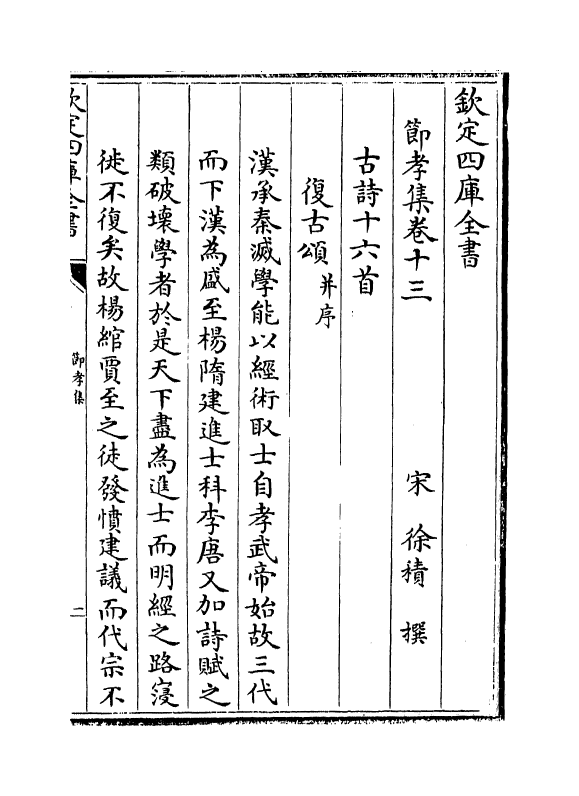 欽定四庫全書
節孝集卷十三
宋 徐積 撰
古詩十六首
復古頌 并序
漢承秦滅學能以經術取士自孝武帝始故三代
而下漢為盛至楊隋建進士科李唐又加詩賦之
類破壞學者於是天下盡為進士而明經之路寖
徙不復矣故楊綰賈至之徒發憤建議而代宗不
欽定四庫全書
節孝集
二